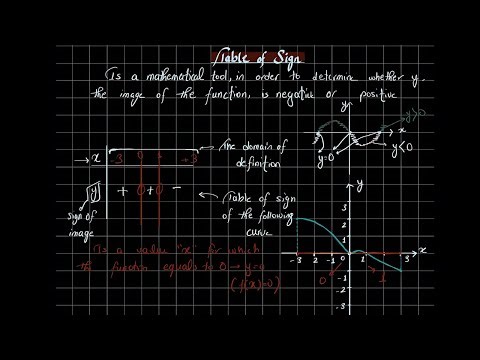 Table of Sign
Is a mathematical tool, in order to determine whether y,
the image of the function, is negative or positive
y
y>0
x
y=0
y<0
The domain of
definition
x -3 0 1 3
y + 0 + 0 -
sign of
image
Table of sign
of the following
curve
Is a value "x" for which
the function equals to 0 → y=0
(f(x)=0)
y
3
2
1
-3 -2 -1 0 1 2 3 x
0 1
-1
-2
-3